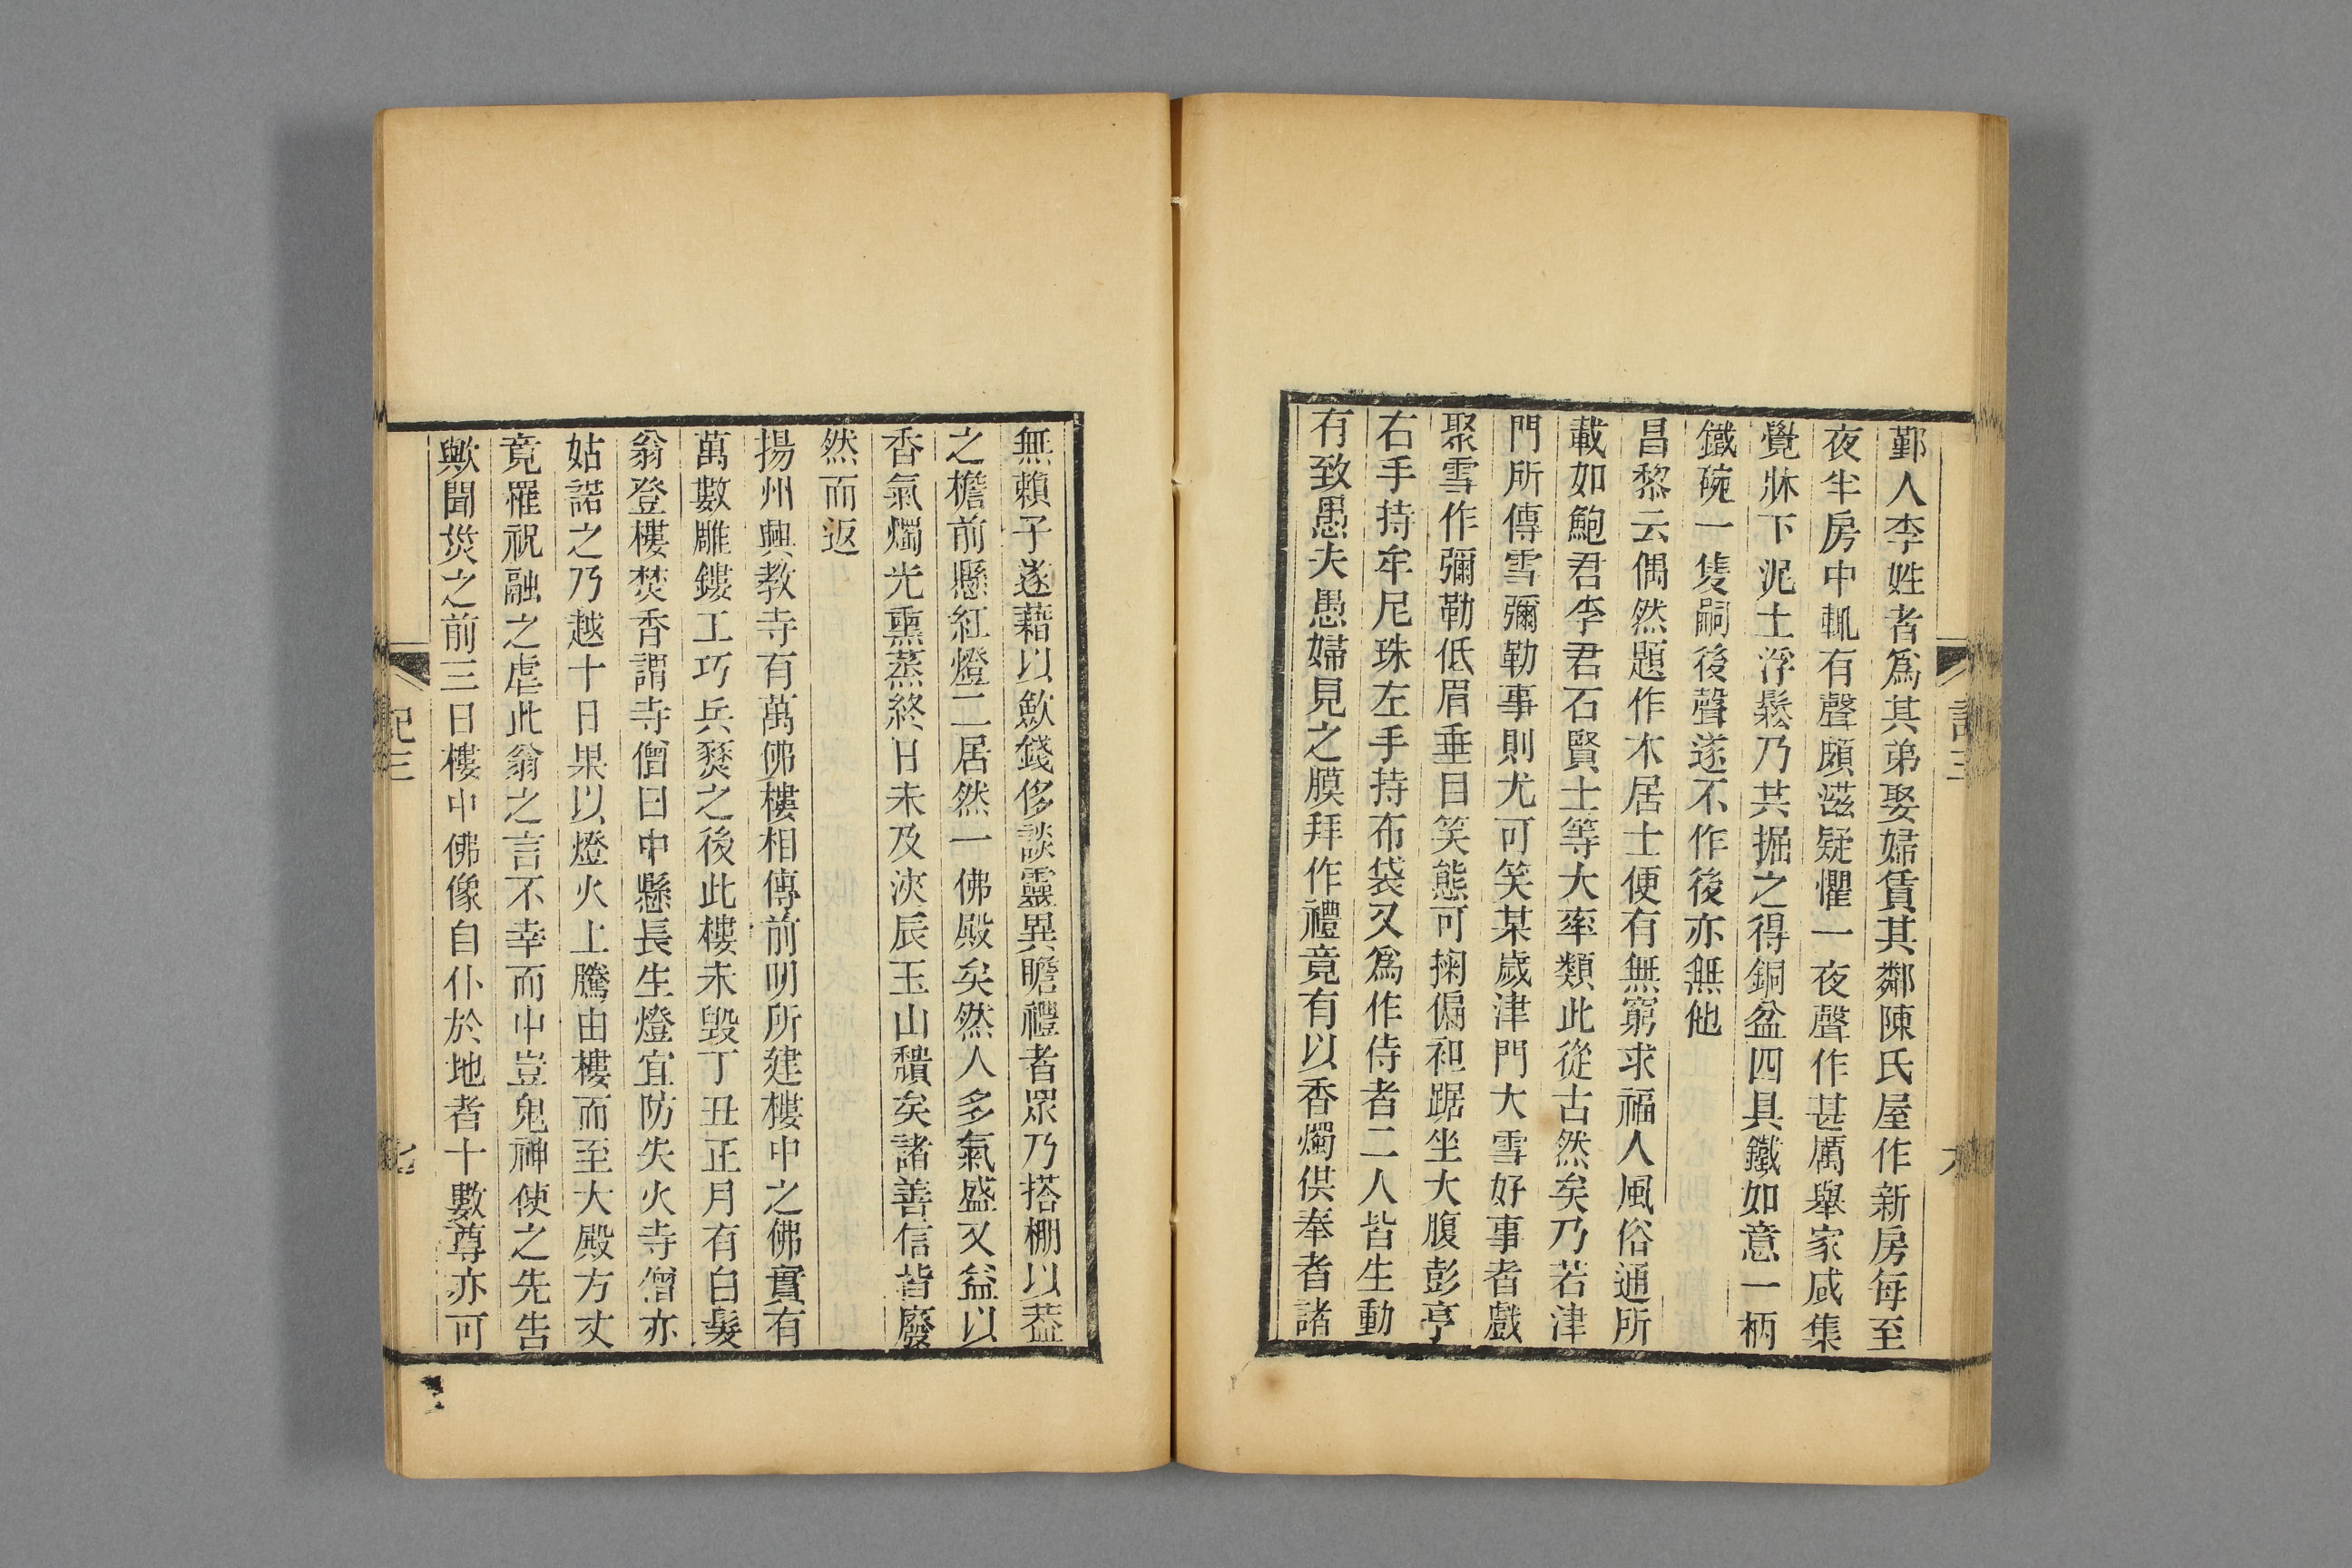 鄞人李姓者爲其弟娶婦賃其鄰陳氏屋作新房每至
夜半房中輒有聲頗滋疑懼一夜聲作甚厲舉家咸集
覺牀下泥土浮鬆乃共掘之得銅盆四具鐵如意一柄
鐵碗一隻嗣後聲遂不作後亦無他
昌黎云偶然題作木居士便有無窮求福人風俗通所
載如鮑君李君石賢士等大率類此從古然矣乃若津
門所傳雪彌勒事則尤可笑某歲津門大雪好事者戲
聚雪作彌勒低眉垂目笑態可掬偏袒踞坐大腹彭亨
右手持牟尼珠左手持布袋又爲作侍者二人皆生動
有致愚夫愚婦見之膜拜作禮竟有以香燭供奉者諸
無賴子遂藉以斂錢侈談靈異瞻禮者眾乃搭棚以葢
之檐前懸紅燈二居然一佛殿矣然人多氣盛又益以
香氣燭光熏蒸終日未及浹辰玉山穨矣諸善信皆廢
然而返
揚州興教寺有萬佛樓相傳前明所建樓中之佛實有
萬數雕鏤工巧兵燹之後此樓未毀丁丑正月有白髮
翁登樓焚香謂寺僧曰中懸長生燈宜防失火寺僧亦
姑諾之乃越十日果以燈火上騰由樓而至大殿方丈
竟罹祝融之虐此翁之言不幸而中豈鬼神使之先告
歟聞災之前三日樓中佛像自仆於地者十數尊亦可
記三
七